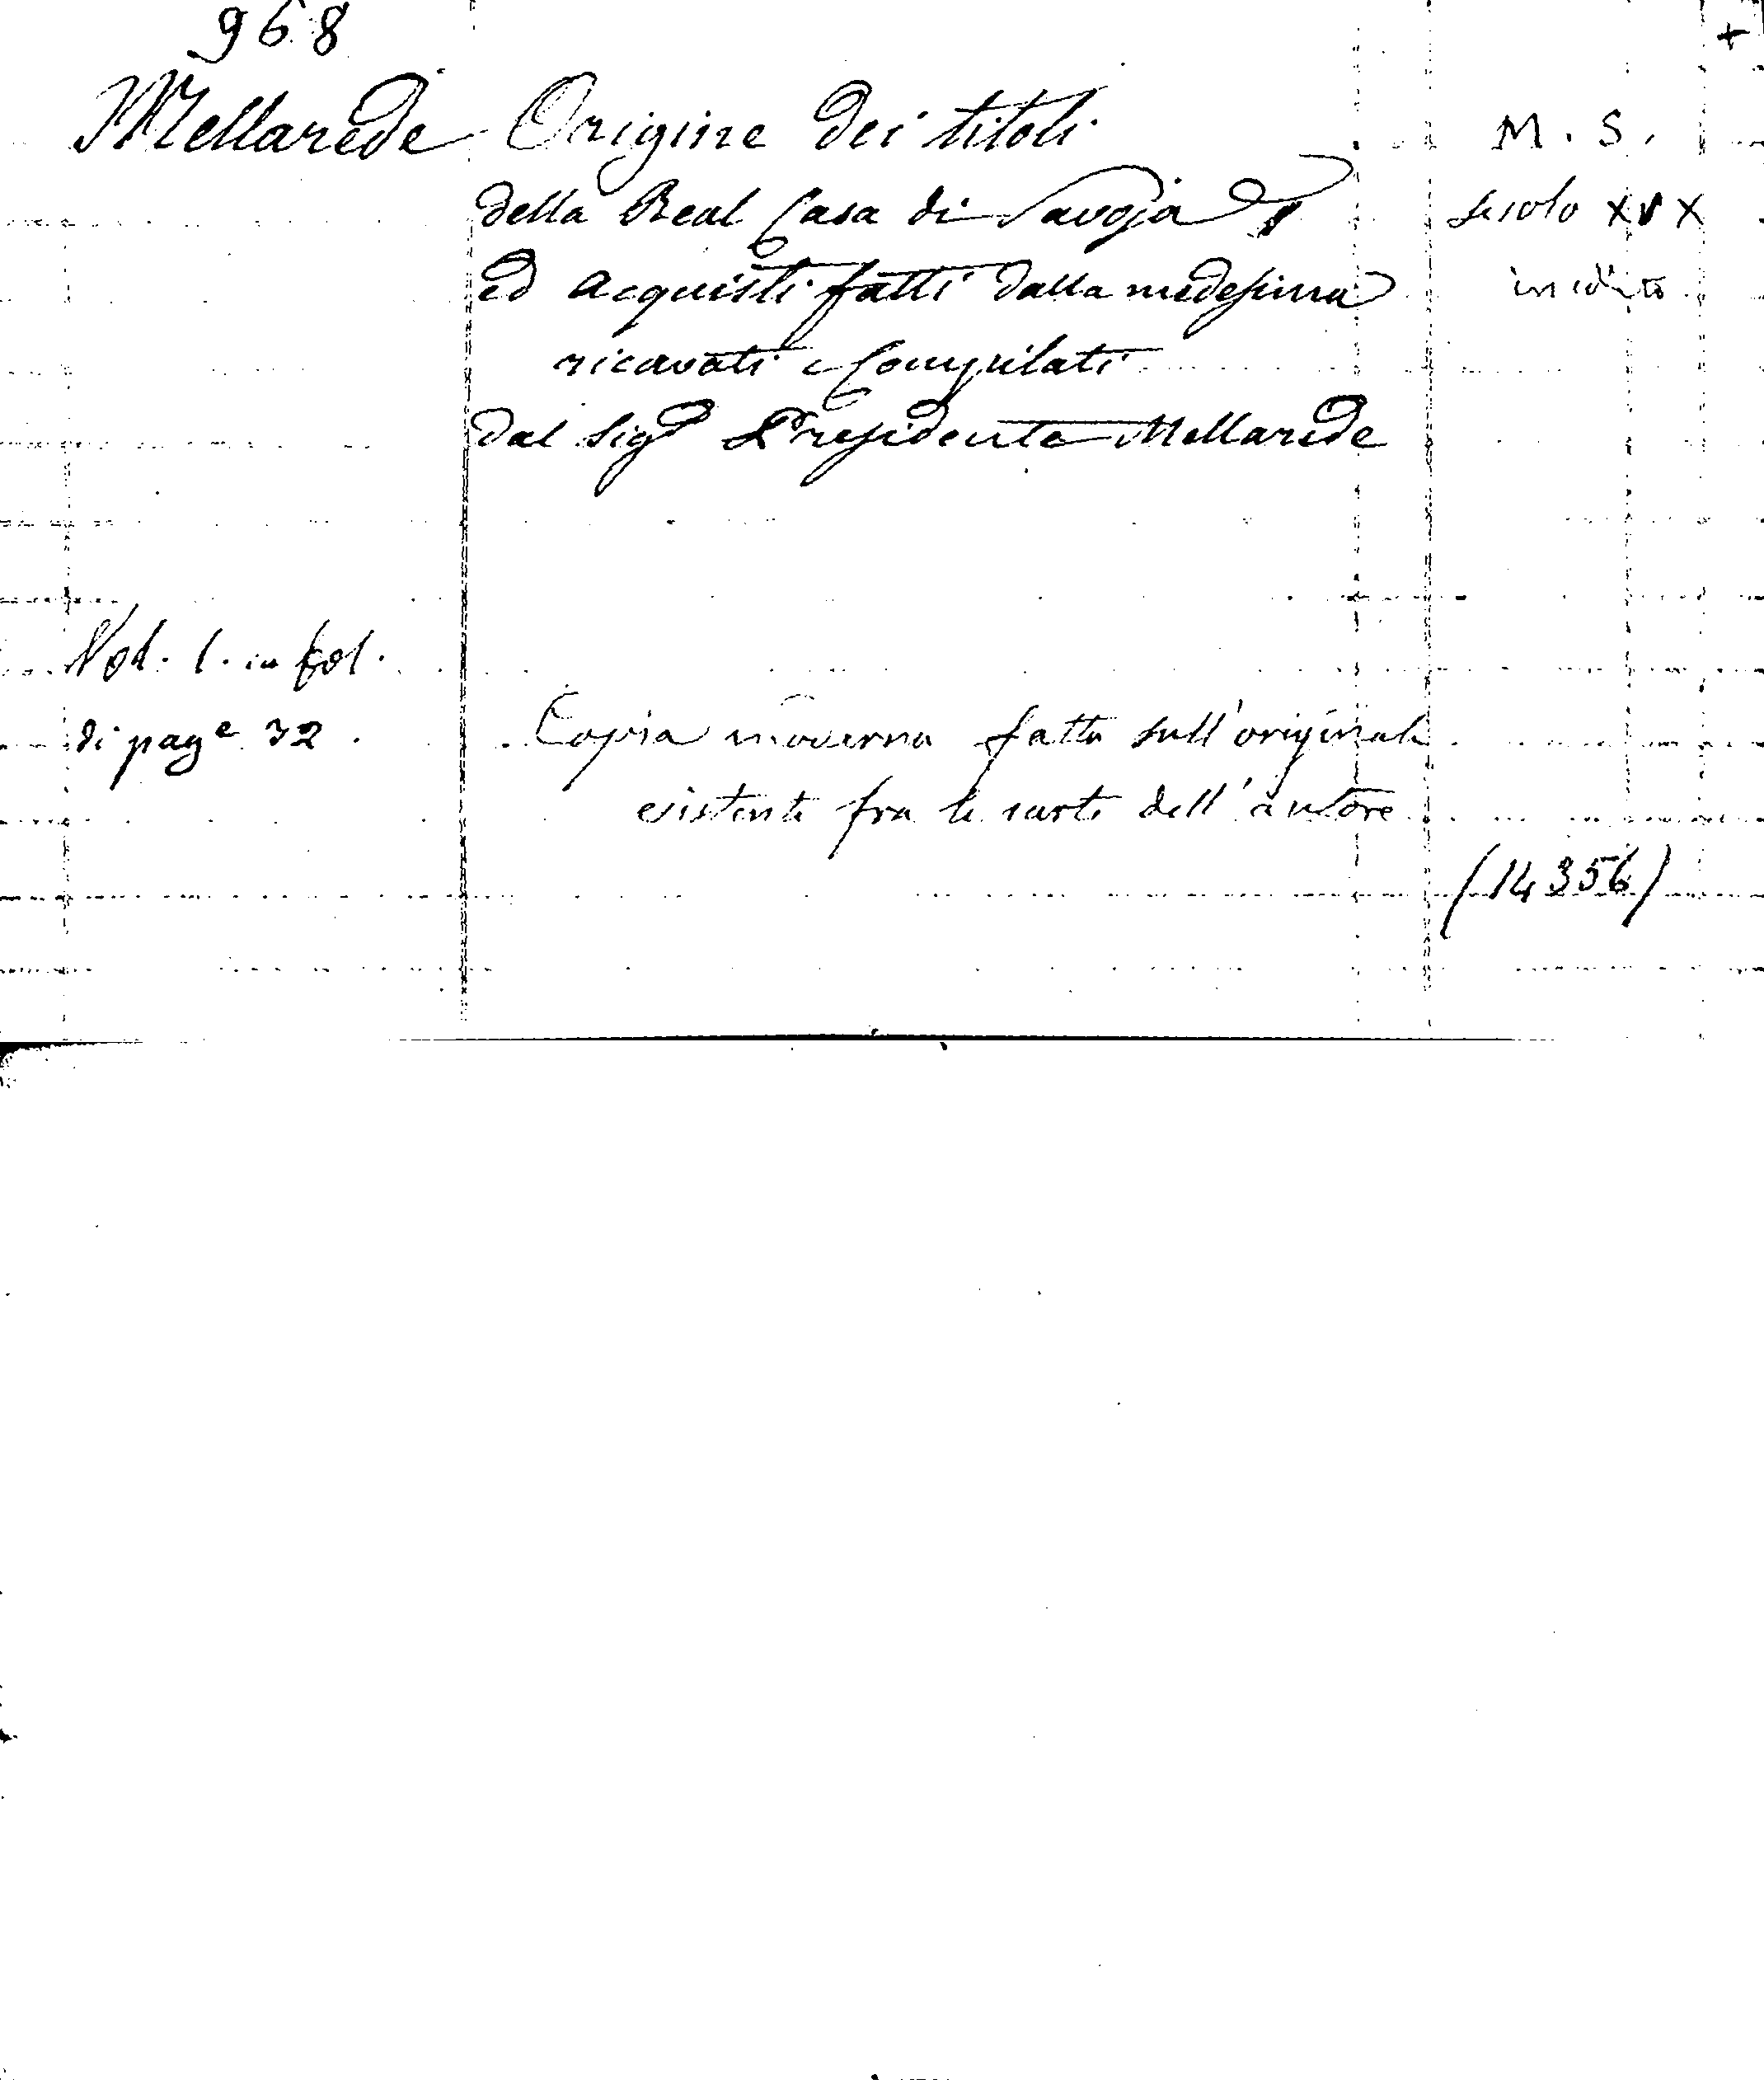 968
+
Mellarede Origine dei titoli M. S.
della Real Casa di Savoja secolo XIX
ed acquisti fatti dalla medesima inedito
ricavati e Compilati
dal Sigr Presidente Mellarede
Vol. 1. in fol.
di page 32. Copia moderna fatta sull'originale
esistente fra le carte dell'autore
(14356)